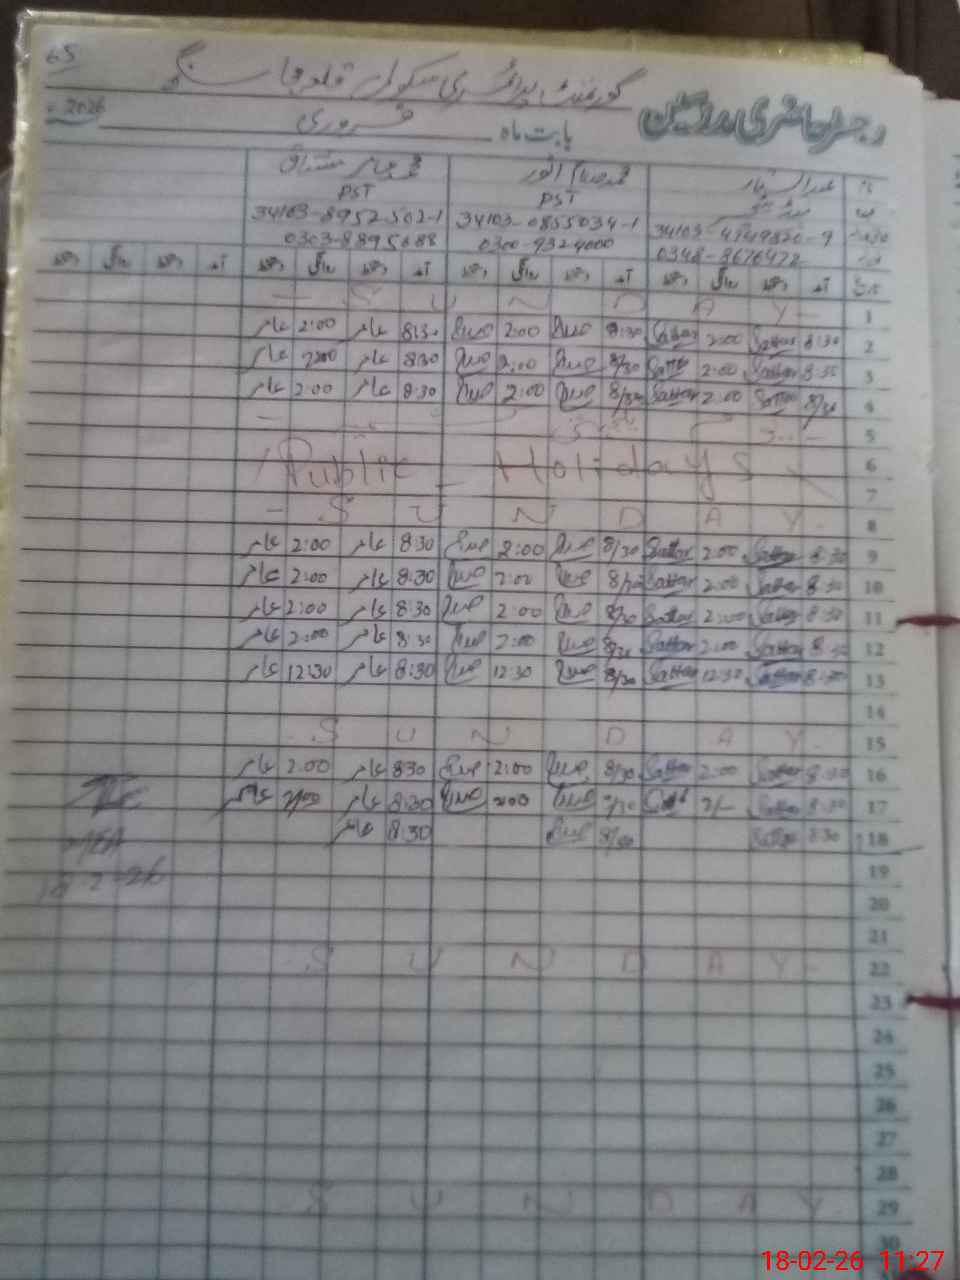 65
گورنمنٹ پرائمری سکول قلعہ
رجسٹر حاضری مدرسین
بابت ماہ فروری 2026
عبدالستار
محمد صیام انور
محمد عامر مشتاق
PST PST
34103-8952502-1 34103-0855034-1 34103-4949820-9
0303-8895688 0300-9324000 0348-8676472
آمد دستخط روانگی دستخط آمد دستخط روانگی دستخط آمد دستخط روانگی دستخط آمد دستخط روانگی دستخط تاریخ
1 - S U N D A Y -
2 8:30 Sattar 2:00 Sattar 8:30 2:00 8:30 عامر 2:00 عامر
3 8:30 Sattar 2:00 Sattar 8/30 2:00 8:30 عامر 2:00 عامر
4 8/30 Sattar 2:00 Sattar 8/30 2:00 8:30 عامر 2:00 عامر
5
6 Public Holidays
7
8 - S U N D A Y -
9 8:30 Sattar 2:00 Sattar 8/30 2:00 8:30 عامر 2:00 عامر
10 8:30 Sattar 2:00 Sattar 8/30 2:00 8:30 عامر 2:00 عامر
11 8:30 Sattar 2:00 Sattar 8/30 2:00 8:30 عامر 2:00 عامر
12 8:30 Sattar 2:00 Sattar 8/30 2:00 8:30 عامر 2:00 عامر
13 8:30 Sattar 12:30 Sattar 8/30 12:30 8:30 عامر 12:30 عامر
14
15 S U N D A Y -
16 8:30 Sattar 2:00 Sattar 8/30 2:00 830 عامر 2:00 عامر
17 8:30 Sattar 2/- 200 8:30 عامر عامر
18 8:30 Sattar 8:30 عامر
18-2-26
19
20
21
22 S U N D A Y -
23
24
25
26
27
28
29 S U N D A Y
30
18-02-26 11:27